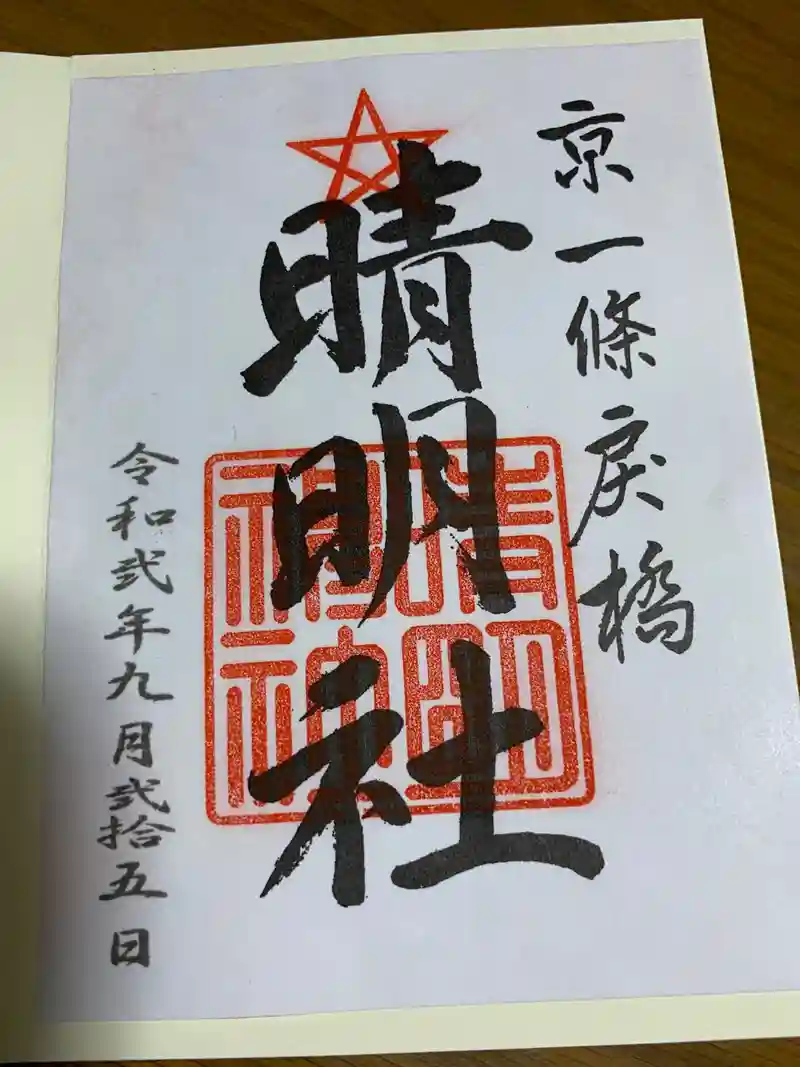 京一條戻橋
晴明社
晴明
神社
令和弐年九月弐拾五日